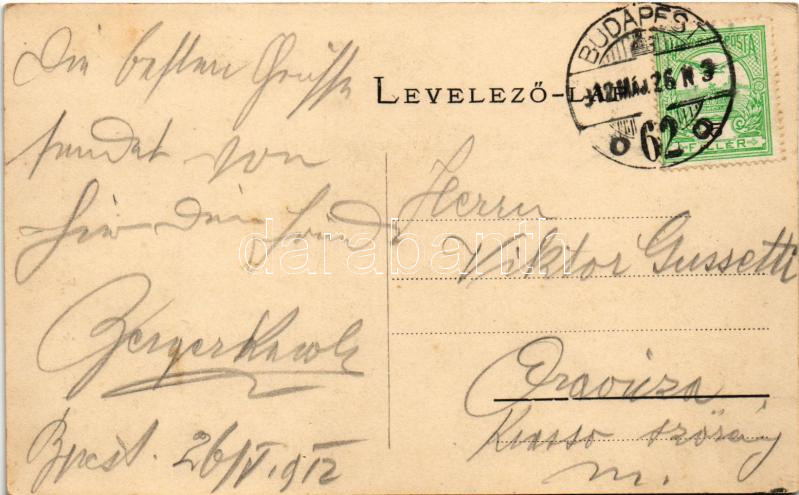 Die besten Grüsse
sendet von
hier Dein Freund
Berger Karola
Bpest. 26/V. 912
LEVELEZŐ-L
BUDAPEST
912 MÁJ. 26 N 3
62
FILLÉR
Herrn
Viktor Gussetti
Oravicza
Krasso szörény
m.
darabanth